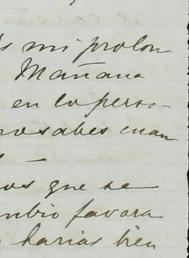 s mi prolon
Mañana
en lo perso-
ro sabes cuan
os que se
mbio favora
harias bien